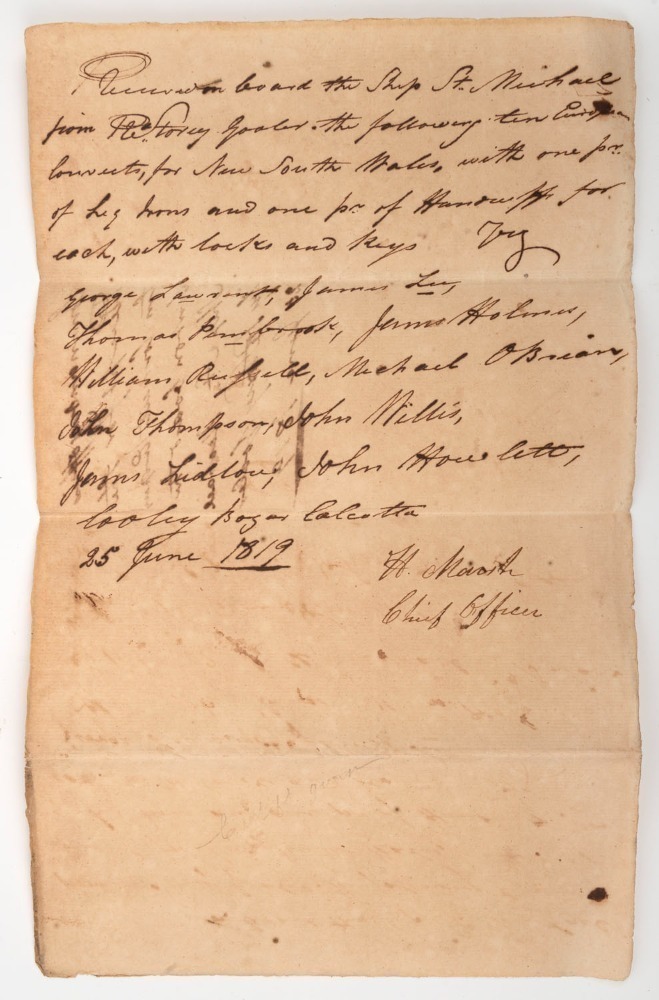 Received on board the Ship St. Michael
from Storey Gaoler the following ten European
Convicts, for New South Wales, with one pr.
of Leg Irons and one pr. of Handcuffs for
each, with locks and keys Viz
George Lawrent, James Lee,
Thomas Pembrook, James Holmes,
William Russell, Michael OBrian,
John Thompson, John Willis,
James Ludlow, John Howlett,
Cooley Bazar Calcutta
25 June 1819
H. Marsh
Chief Officer